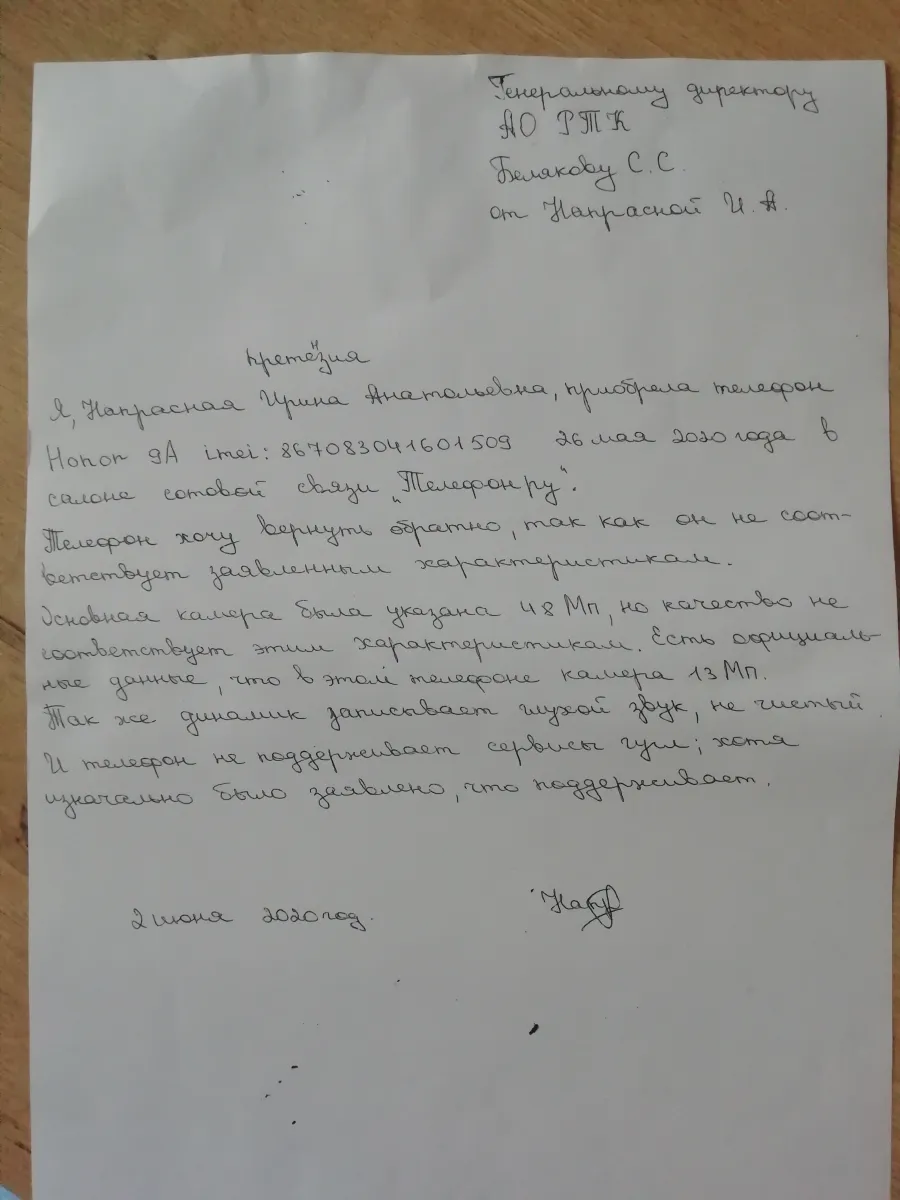 Генеральному директору
АО РТК
Белякову С.С.
от Напрасной И.А.
претензия
Я, Напрасная Ирина Анатольевна, приобрела телефон
Honor 9A imei: 867083041601509 26 мая 2020 года в
салоне сотовой связи „Телефон ру".
Телефон хочу вернуть обратно, так как он не соот-
ветствует заявленным характеристикам.
Основная камера была указана 48 Мп, но качество не
соответствует этим характеристикам. Есть официаль-
ные данные, что в этом телефоне камера 13 Мп.
Так же динамик записывает глухой звук, не чистый
И телефон не поддерживает сервисы гугл; хотя
изначально было заявлено, что поддерживает.
2 июня 2020 год.